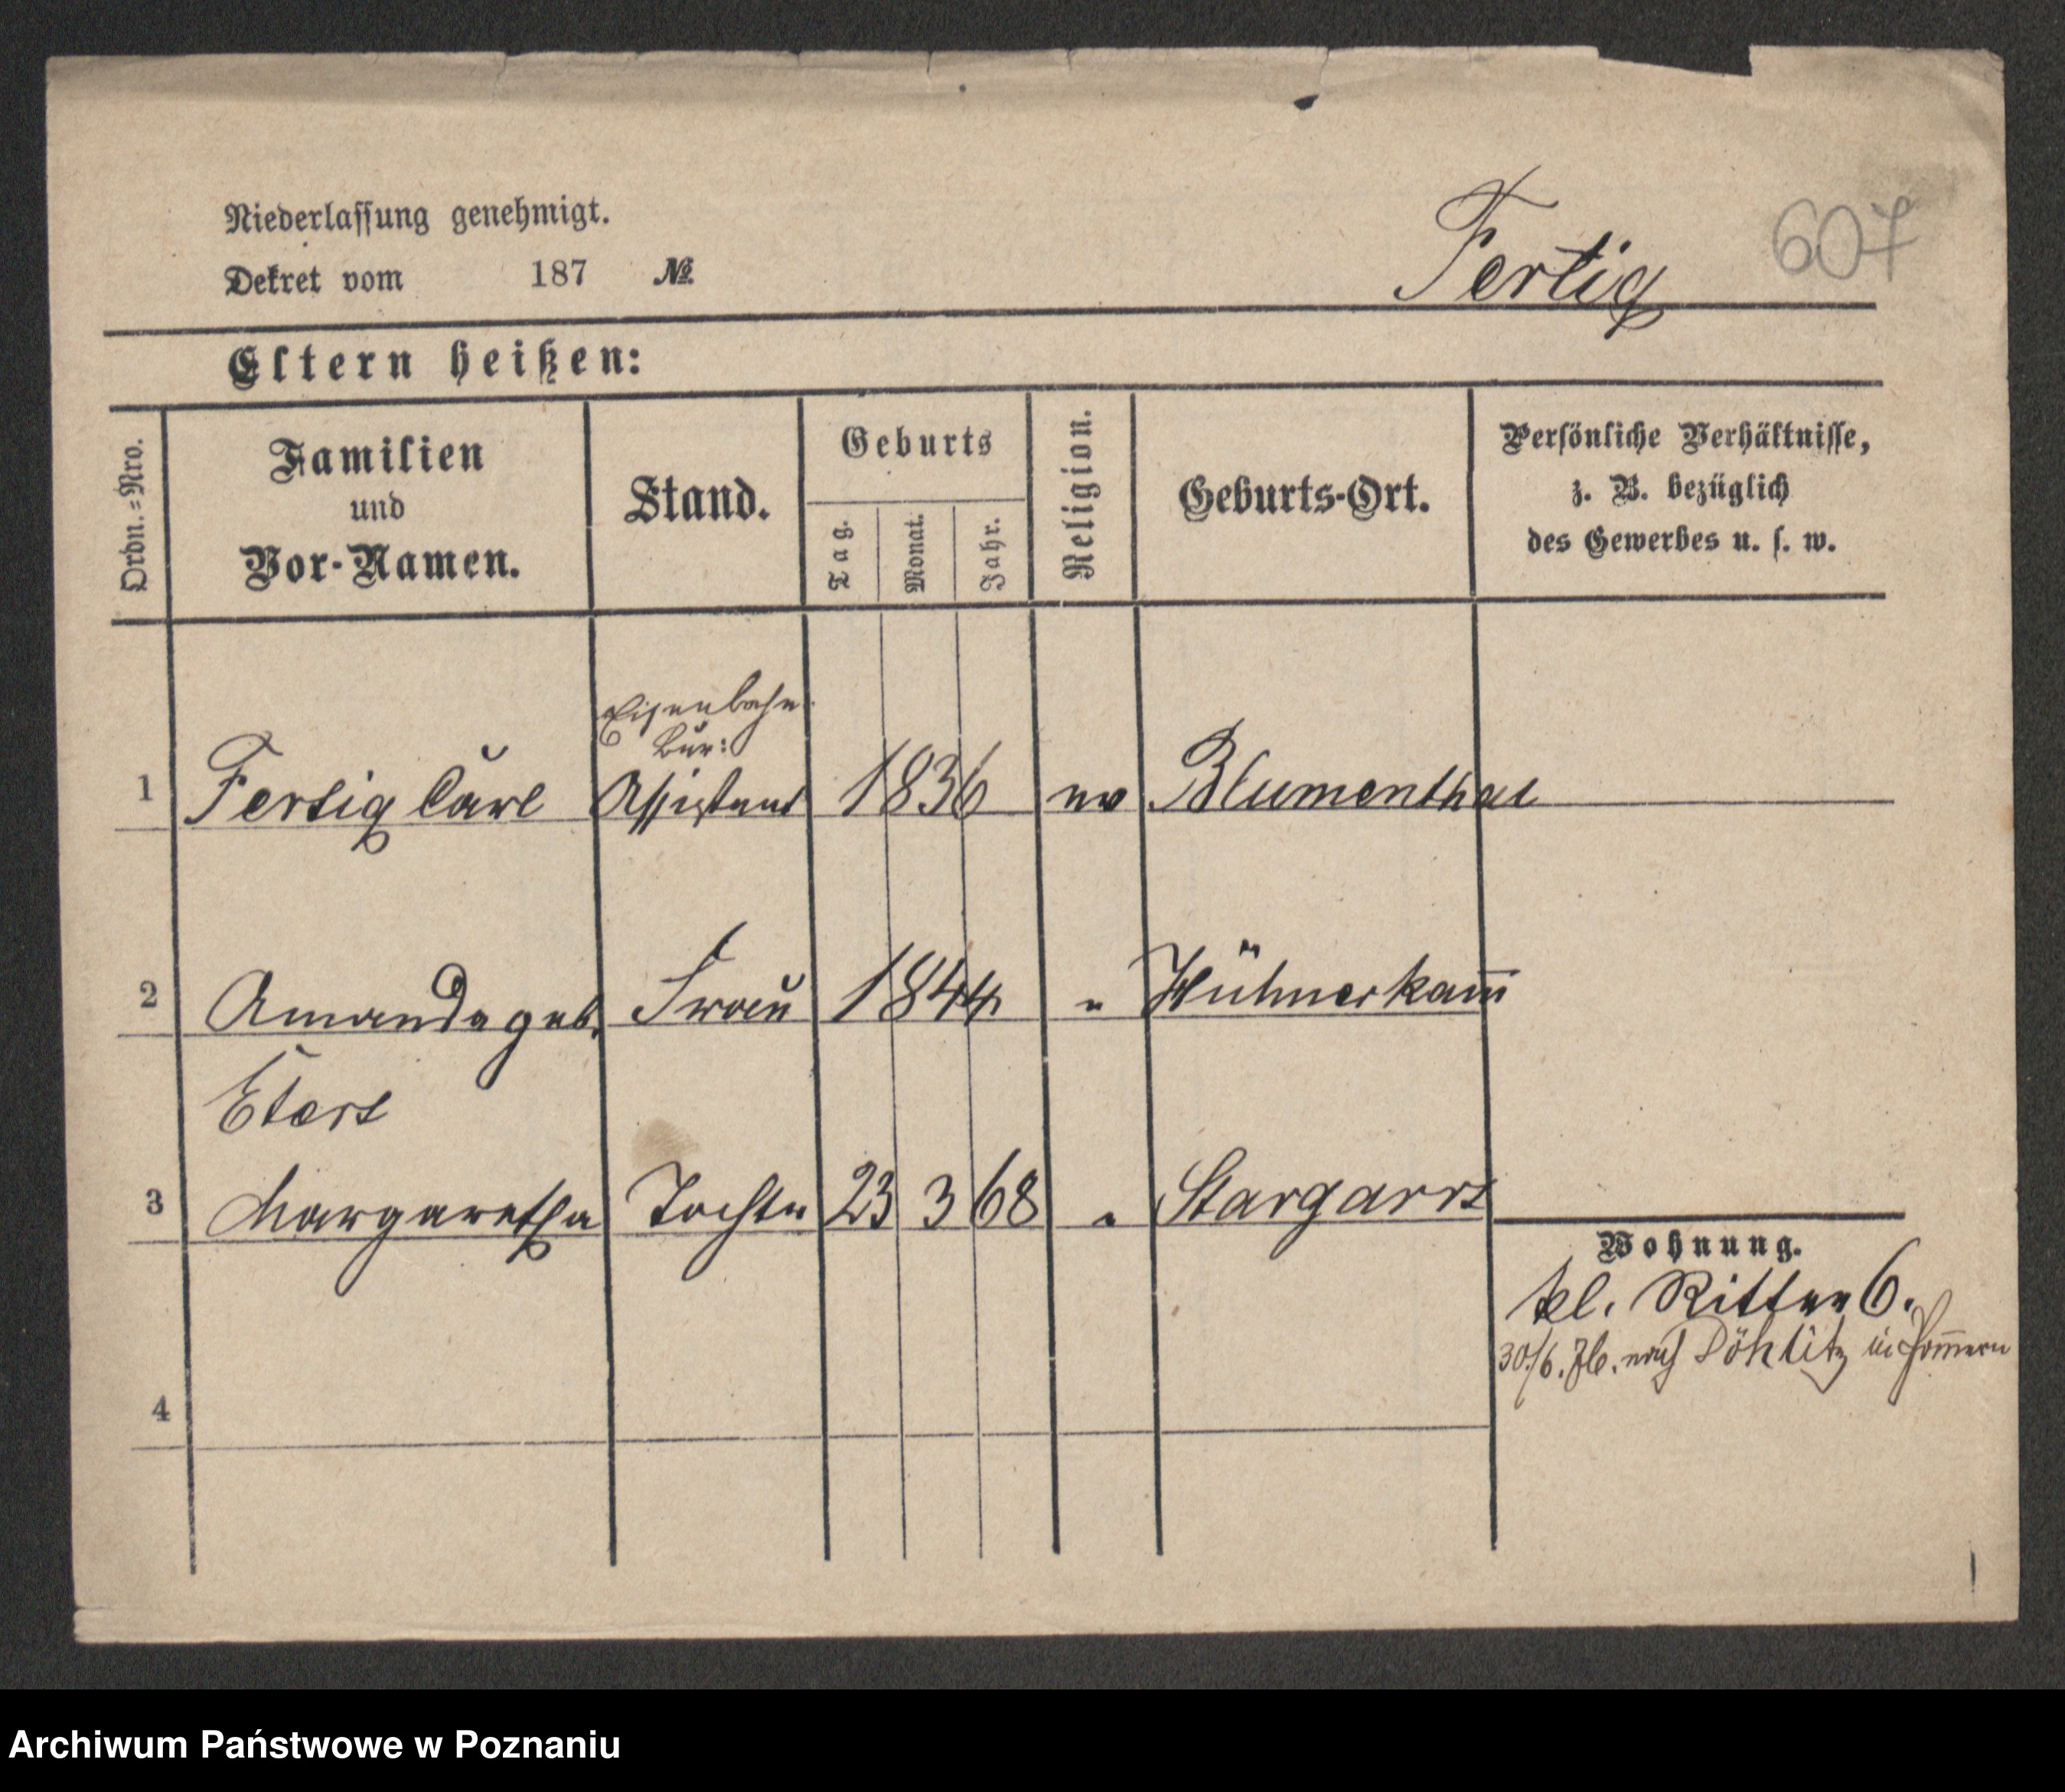 Niederlassung genehmigt.
Dekret vom 187 №
Fertig 607
Eltern heißen:
Ordn.=Nro.
Familien
und
Vor-Namen.
Stand.
Geburts
Tag.
Monat.
Jahr.
Religion.
Geburts-Ort.
Persönliche Verhältnisse,
z. B. bezüglich
des Gewerbes u. s. w.
Eisenbahn
Bür:
1 Fertig Carl Assistent 1836 ev Blumenthal
2 Amanda geb. Frau 1844 " Hühnerkam̄
Etert
3 Margaretha Tochter 23 3 68 " Stargardt
Wohnung.
kl. Ritter 6.
30/6. 76. nach Pöhlitz in Pom̄ern
4
Archiwum Państwowe w Poznaniu